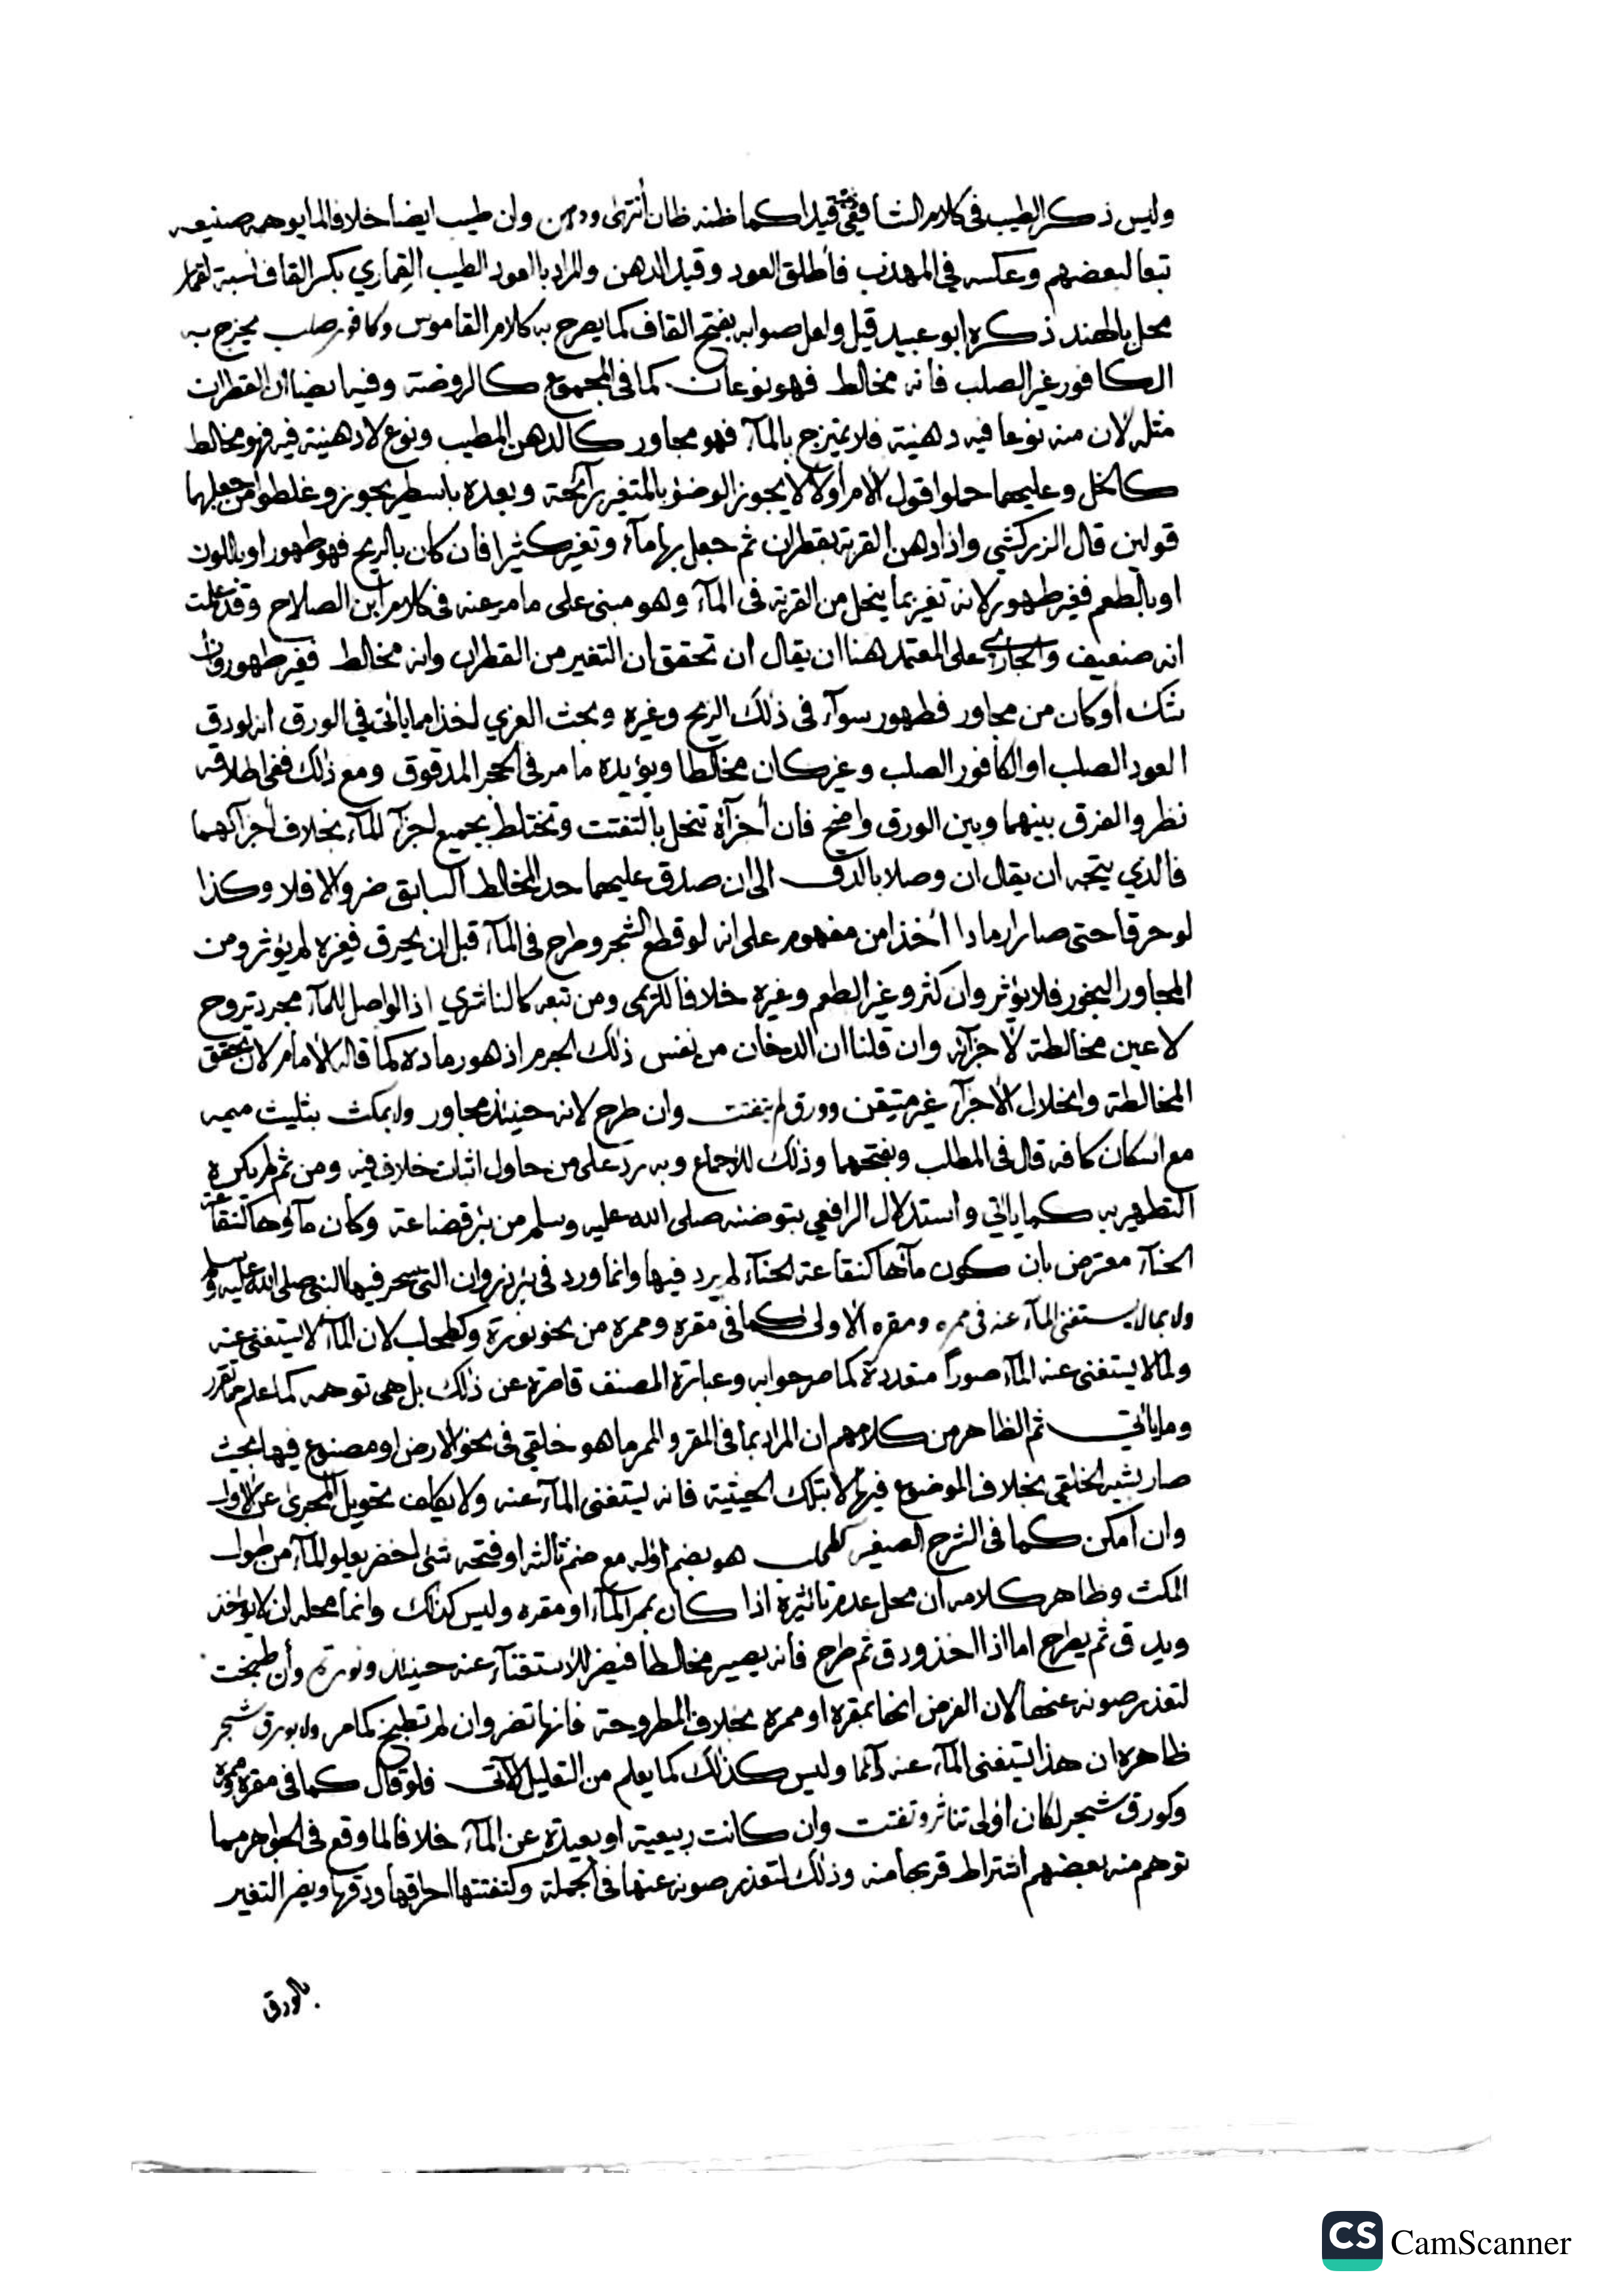 وليس ذكر الطيب في كلام الشافعي قيدا كما ظنه ظان انتهى ودهن وان طيب ايضا خلافا لما يوهمه صنيعه
تبعا لبعضهم وعكسه في المهذب فأطلق العود وقيد الدهن والمراد بالعود الطيب القِماري بكسر القاف نسبة لقمار
محل بالهند ذكره ابو عبيد قيل ولعل صوابه بفتح القاف كما يصرح به كلام القاموس وكافور صلب يخرج به
الكافور غير الصلب فانه مخالط فهو نوعان كما في المجموع كالروضة وفيه ايضا ان القطران
مثله لان منه نوعا فيه دهنية فلا يمتزج بالمآء فهو مجاور كالدهن المطيب ونوع لا دهنية فيه فهو مخالط
كالخل وعليهما حملوا قول الأم أولا لا يجوز الوضوء بالمتغير برآئحة وبعده باسطر يجوز وغلطوا من جعلهما
قولين قال الزركشي واذا دهن القربة بقطران ثم جعل بها مآء وتغير كثيرا فان كان بالريح فهو طهور او باللون
او بالطعم فغير طهور لانه تغير بما ينحل من القربة في المآء وهو مبني على ما مر عنه في كلام ابن الصلاح وقد علمت
انه ضعيف والجاري على المعتمد هنا ان يقال ان تحقق ان التغير من القطران وانه مخالط فغير طهور وان
شك أو كان من مجاور فطهور سوآء في ذلك الريح وغيره وبحث الغزي اخذا مما يأتي في الورق انه لو دق
العود الصلب او الكافور الصلب وغير كان مخالطا ويؤيده ما مر في الحجر المدقوق ومع ذلك ففي اطلاقه
نظر والفرق بينهما وبين الورق واضح فان أجزآءه تنحل بالتفتت وتختلط بجميع اجزآء المآء بخلاف اجزآئهما
فالذي يتجه ان يقال ان وصلا بالدق الى ان صدق عليهما حد المخالط السابق ضر والا فلا وكذا
لو حرقا حتى صارا رمادا أخذا من مفهوم على انه لو قطع الشجر وطرح في المآء قبل ان يحرق فغيره لم يؤثر ومن
المجاور البخور فلا يؤثر وان كثر وغير الطعم وغيره خلافا للزبرى ومن تبعه كالناشري اذ الواصل للمآء مجرد تروح
لا عين مخالطة لأجزآئه وان قلنا ان الدخان من نفس ذلك الجرم اذ هو رماده كما قاله الأمام لان تحقق
المخالطة وانحلال الأجزآء غير متيقن وورق لم يتفتت وان طرح لانه حينئذ مجاور ولا بمكث بتثليث ميمه
مع اسكان كافه قال في المطلب وبفتحهما وذلك للاجماع وبه رد على من حاول اثبات خلاف فيه ومن ثم لم يكره
التطهير به كما يأتي واستدلال الرافعي بتوضئه صلى الله عليه وسلم من بئر قضاعة وكأن مآؤها كنقاعة
الحنآء معترض بان كون مآئها كنقاعة الحنآء لم يرد فيها وانما ورد في بئر ذروان التي سحر فيها النبي صلى الله عليه وسلم
ولا بما لا يستغني المآء عنه في ممره ومقره الاولى كما في مقره وممره من نحو نورة وكطحلب لان المآء لا يستغني عنه
ولما لا يستغني عنه المآء صوراً متعددة كما مر جوابه وعبارة المصنف قاصرة عن ذلك بل هي توهمه كما علم مما تقرر
وما يأتي ثم الظاهر من كلامهم ان المراد بما في المقر والممر ما هو خلقي في نحو الارض او مصنوع فيها بحيث
صار يشبه الخلقي بخلاف الموضوع فيها لا بتلك الحيثية فانه يستغني المآء عنه ولا يكلف تحويل المجرى عن الاول
وان امكن كما في الشرح الصغير كطحلب هو بضم اوله مع ضم ثالثه او فتحه شئ اخضر يعلو المآء من طول
المكث وظاهر كلامه ان محل عدم تأثيره اذا كان بممر المآء او مقره وليس كذلك وانما محله ان لا يؤخذ
ويدق ثم يطرح اما اذا اخذ ودق ثم طرح فانه يصير مخالطا فيضر للاستغنآء عنه حينئذ ونورة وأن طبخت
لتعذر صونه عنها لان الفرض انها بمقره او ممره بخلاف المطروحة فانها تضر وان لم تطبخ كما مر ولا بورق شجر
ظاهره ان هذا يستغني المآء عنه دآئما وليس كذلك كما يعلم من التعليل الآتي فلو قال كما في مقره وممره
وكورق شجر لكان اولى تناثر وتفتت وان كانت ربيعية او بعيدة عن المآء خلافا لما وقع في الجواهر مما
توهم منه بعضهم اشتراط قربها منه وذلك لتعذر صونه عنها في الجملة وكتفتتها احراقها ودقها ويضر التغير
بالورق
CS CamScanner